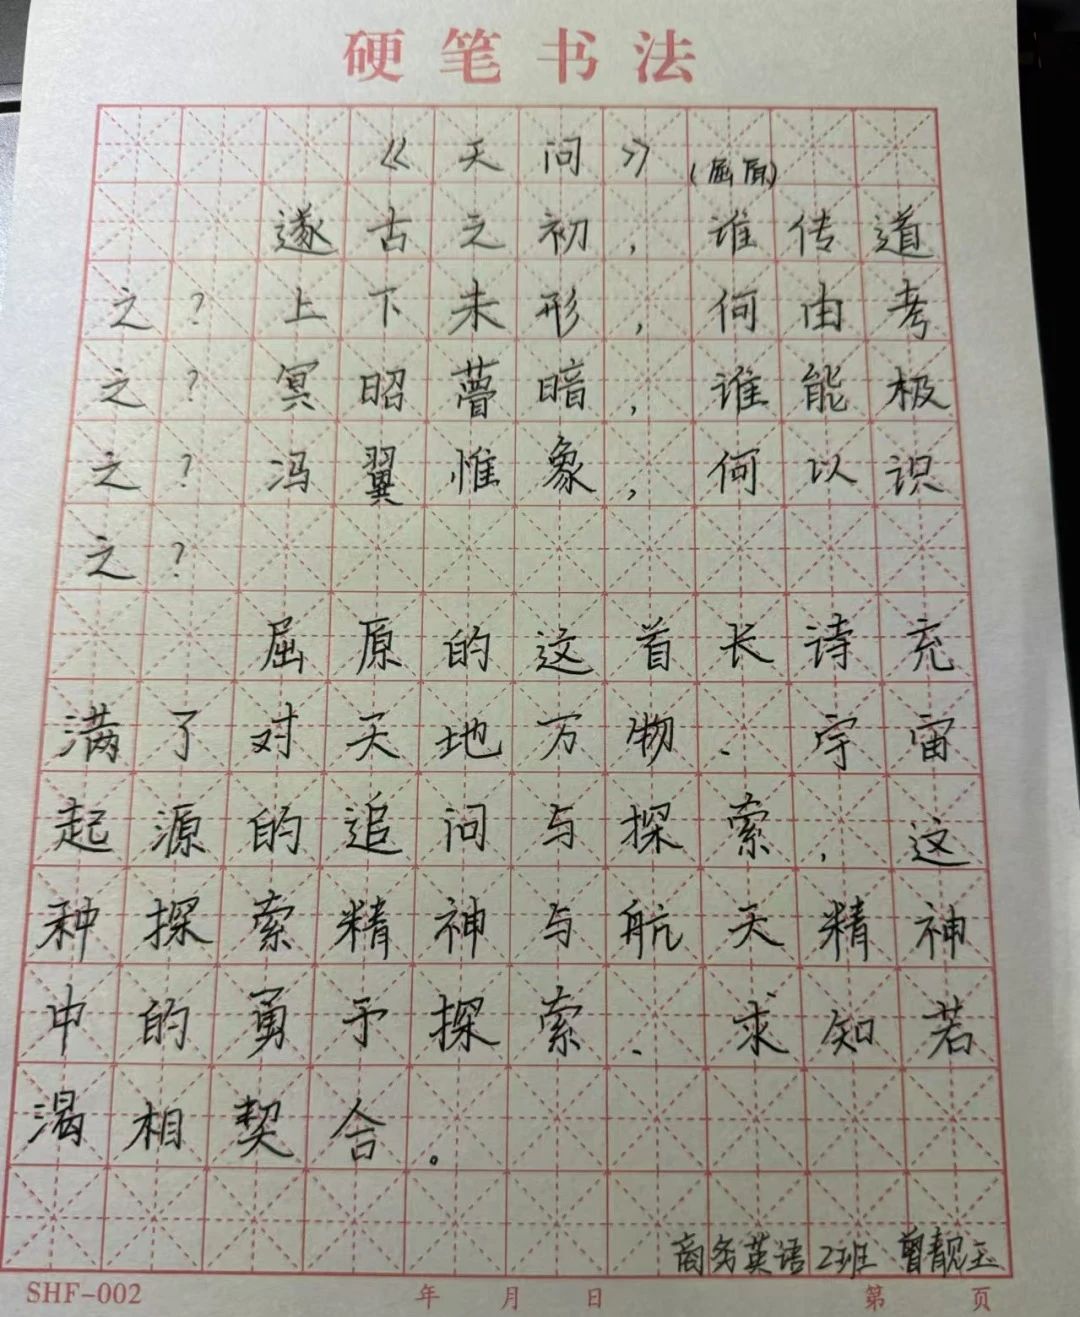 硬笔书法
《天问》(屈原)
遂古之初,谁传道
之?上下未形,何由考
之?冥昭瞢暗,谁能极
之?冯翼惟象,何以识
之?
屈原的这首长诗充
满了对天地万物、宇宙
起源的追问与探索,这
种探索精神与航天精神
中的勇于探索、求知若
渴相契合。
商务英语2班 曾靓玉
SHF-002 年 月 日 第 页